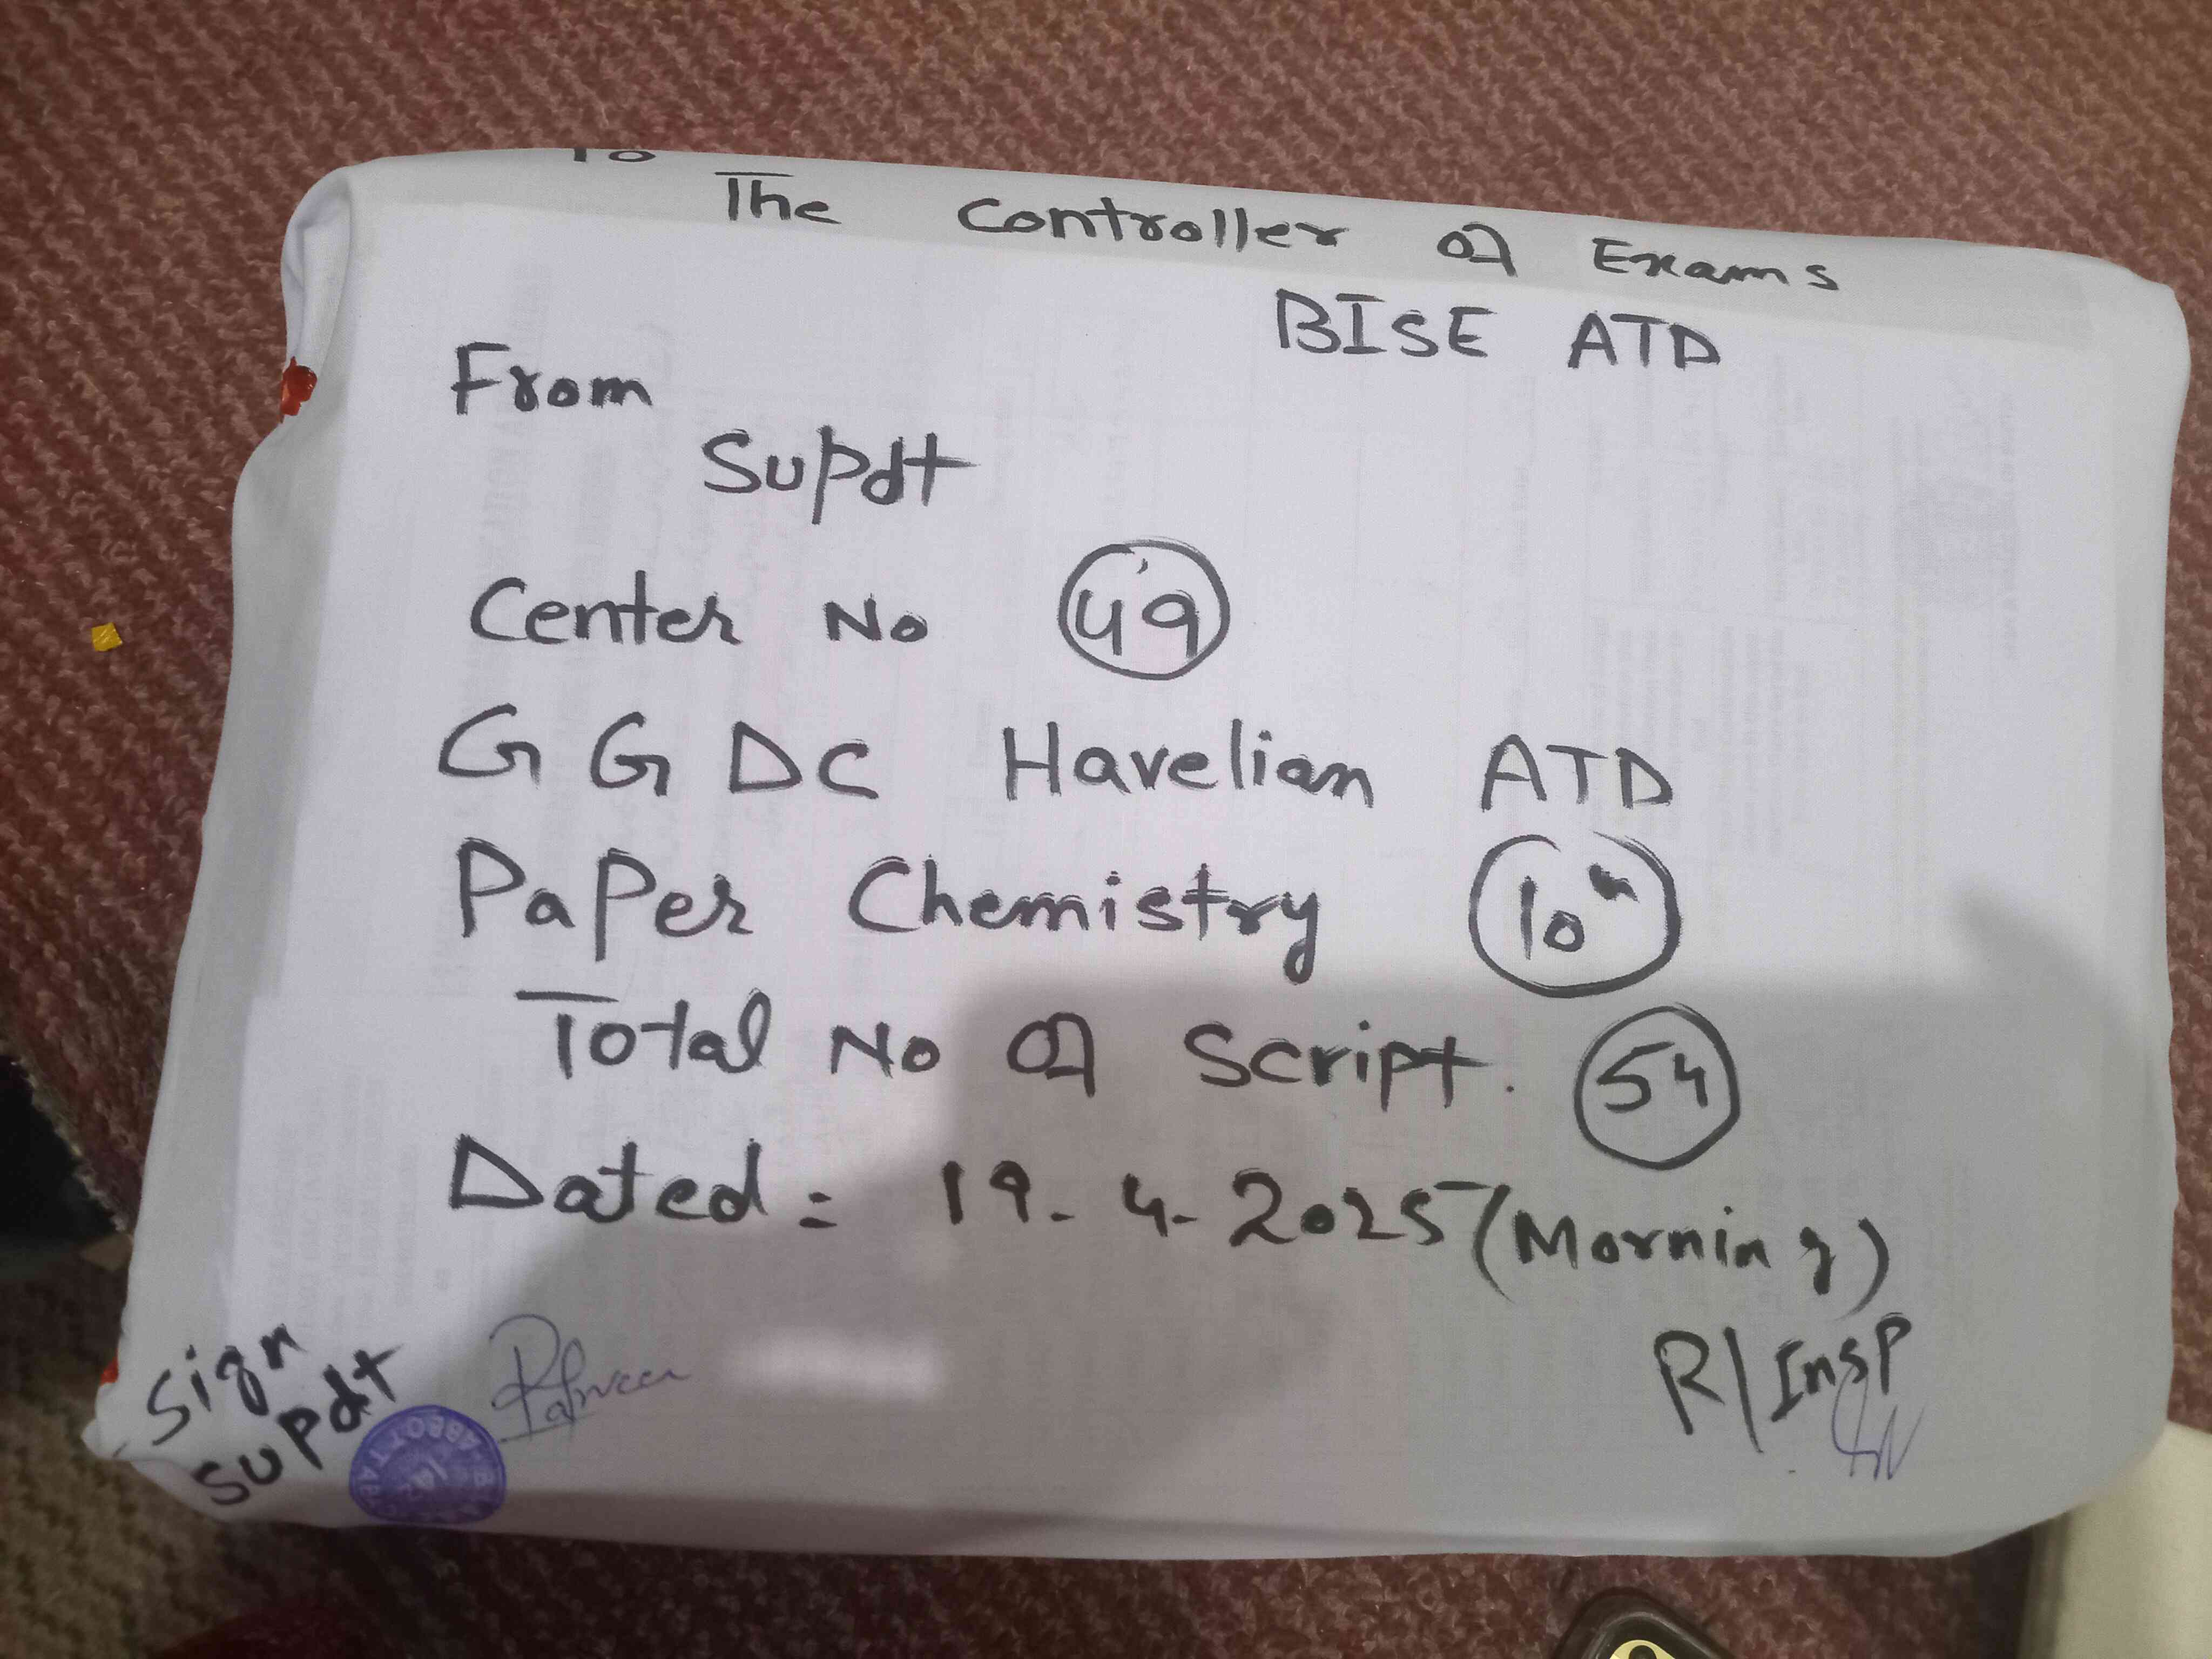 To
The Controller of Exams
BISE ATD
From
Supdt
Center No 49
G G D C Havelian ATD
Paper Chemistry 10th
Total No of Script. 54
Dated = 19-4-2025 (Morning)
Sign
Supdt
R/Insp